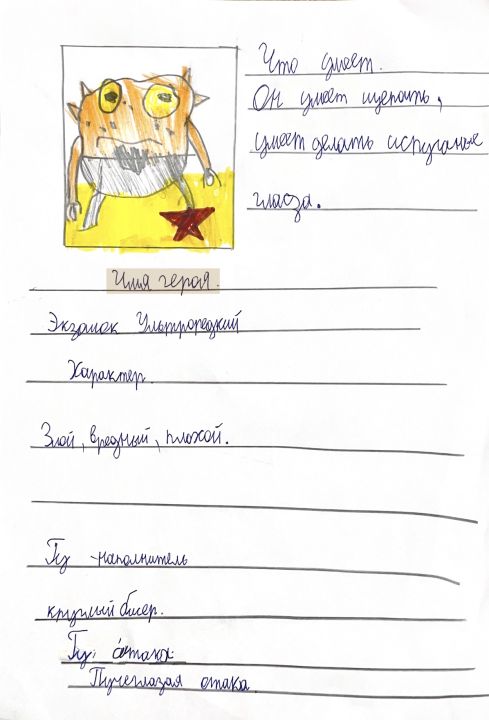 Что умеет.
Он умеет щерить,
умеет делать испуганые
глаза.
Имя героя.
Экзамок Ультроредкий
Характер.
Злой, вредный, плохой.
Гу -наполнитель
круглый бисер.
Гу: атака:
Пучеглазая атака.